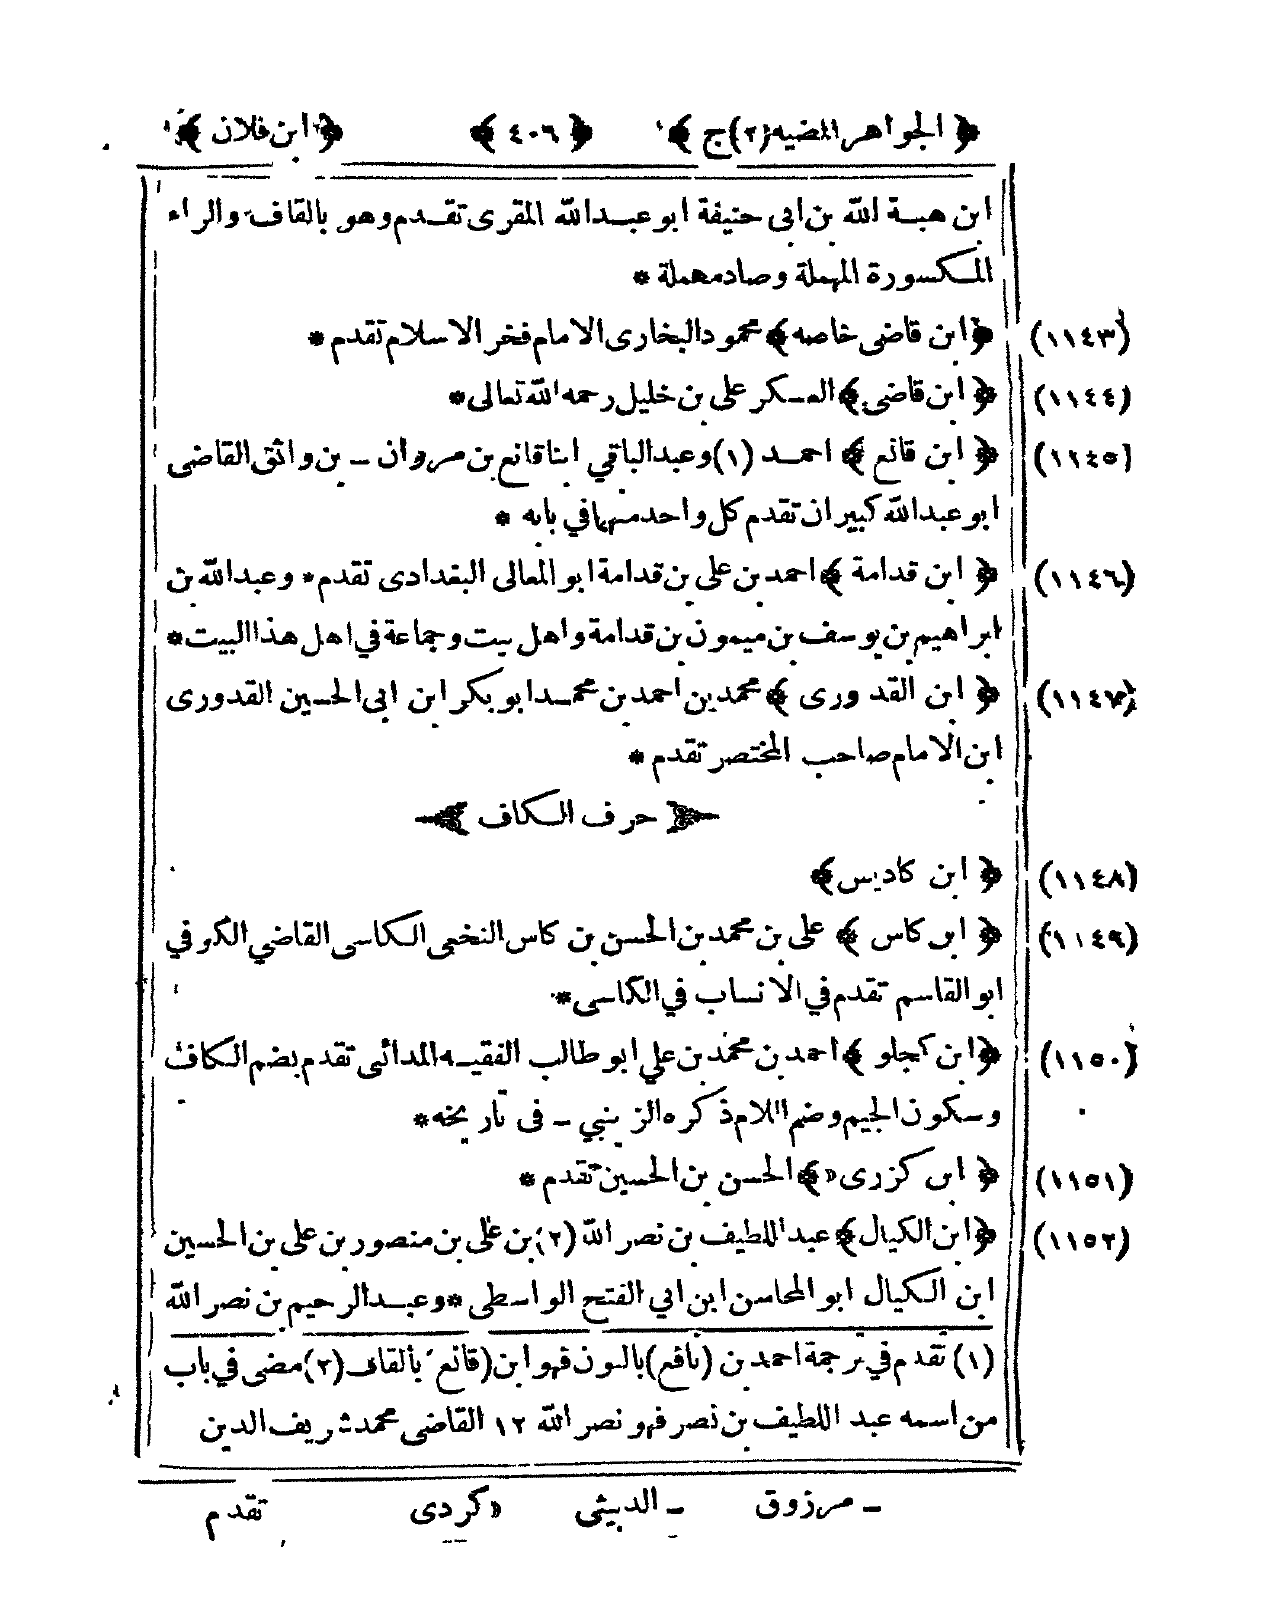 ﴿ الجواهر المضيه (٢) ج ﴾ ﴿ ٤٠٦ ﴾ ﴿ ابن فلان ﴾
ابن هبة الله بن ابى حنيفة ابو عبد الله المقرى تقدم وهو بالقاف والراء
المكسورة المهملة وصاد مهملة *
(١١٤٣) ﴿ ابن قاضى خاصه ﴾ محمود البخارى الامام فخر الاسلام تقدم *
(١١٤٤) ﴿ ابن قاضى ﴾ العسكر على بن خليل رحمه الله تعالى *
(١١٤٥) ﴿ ابن قانع ﴾ احمد (١) وعبد الباقي ابنا قانع بن مروان ـ بن واثق القاضى
ابو عبد الله كبيران تقدم كل واحد منهما في بابه *
(١١٤٦) ﴿ ابن قدامة ﴾ احمد بن على بن قدامة ابو المعالى البغدادى تقدم * وعبد الله بن
ابراهيم بن يوسف بن ميمون بن قدامة واهل بيت وجماعة في اهل هذا البيت *
(١١٤٧) ﴿ ابن القدورى ﴾ محمد بن احمد بن محمد ابو بكر ابن ابى الحسين القدورى
ابن الامام صاحب المختصر تقدم *
حرف الكاف
(١١٤٨) ﴿ ابن كاديس ﴾
(١١٤٩) ﴿ ابن كاس ﴾ على بن محمد بن الحسن بن كاس النخعى الكاسى القاضي الكوفي
ابو القاسم تقدم في الانساب في الكاسى *
(١١٥٠) ﴿ ابن كجلو ﴾ احمد بن محمد بن علي ابو طالب الفقيه المدائى تقدم بضم الكاف
وسكون الجيم وضم اللام ذكره الزينبي ـ فى تاريخه *
(١١٥١) ﴿ ابن كزرى « ﴾ الحسن بن الحسين تقدم *
(١١٥٢) ﴿ ابن الكيال ﴾ عبد اللطيف بن نصر الله (٢) بن على بن منصور بن على بن الحسين
ابن الكيال ابو المحاسن ابن ابي الفتح الواسطى * وعبد الرحيم بن نصر الله
(١) تقدم في ترجمة احمد بن (نافع) بالنون فهو ابن (قانع) بالقاف (٢) مضى في باب
من اسمه عبد اللطيف بن نصر فهو نصر الله ١٢ القاضى محمد شريف الدين
ـ مرزوق ـ الدبيثى « كردى تقدم